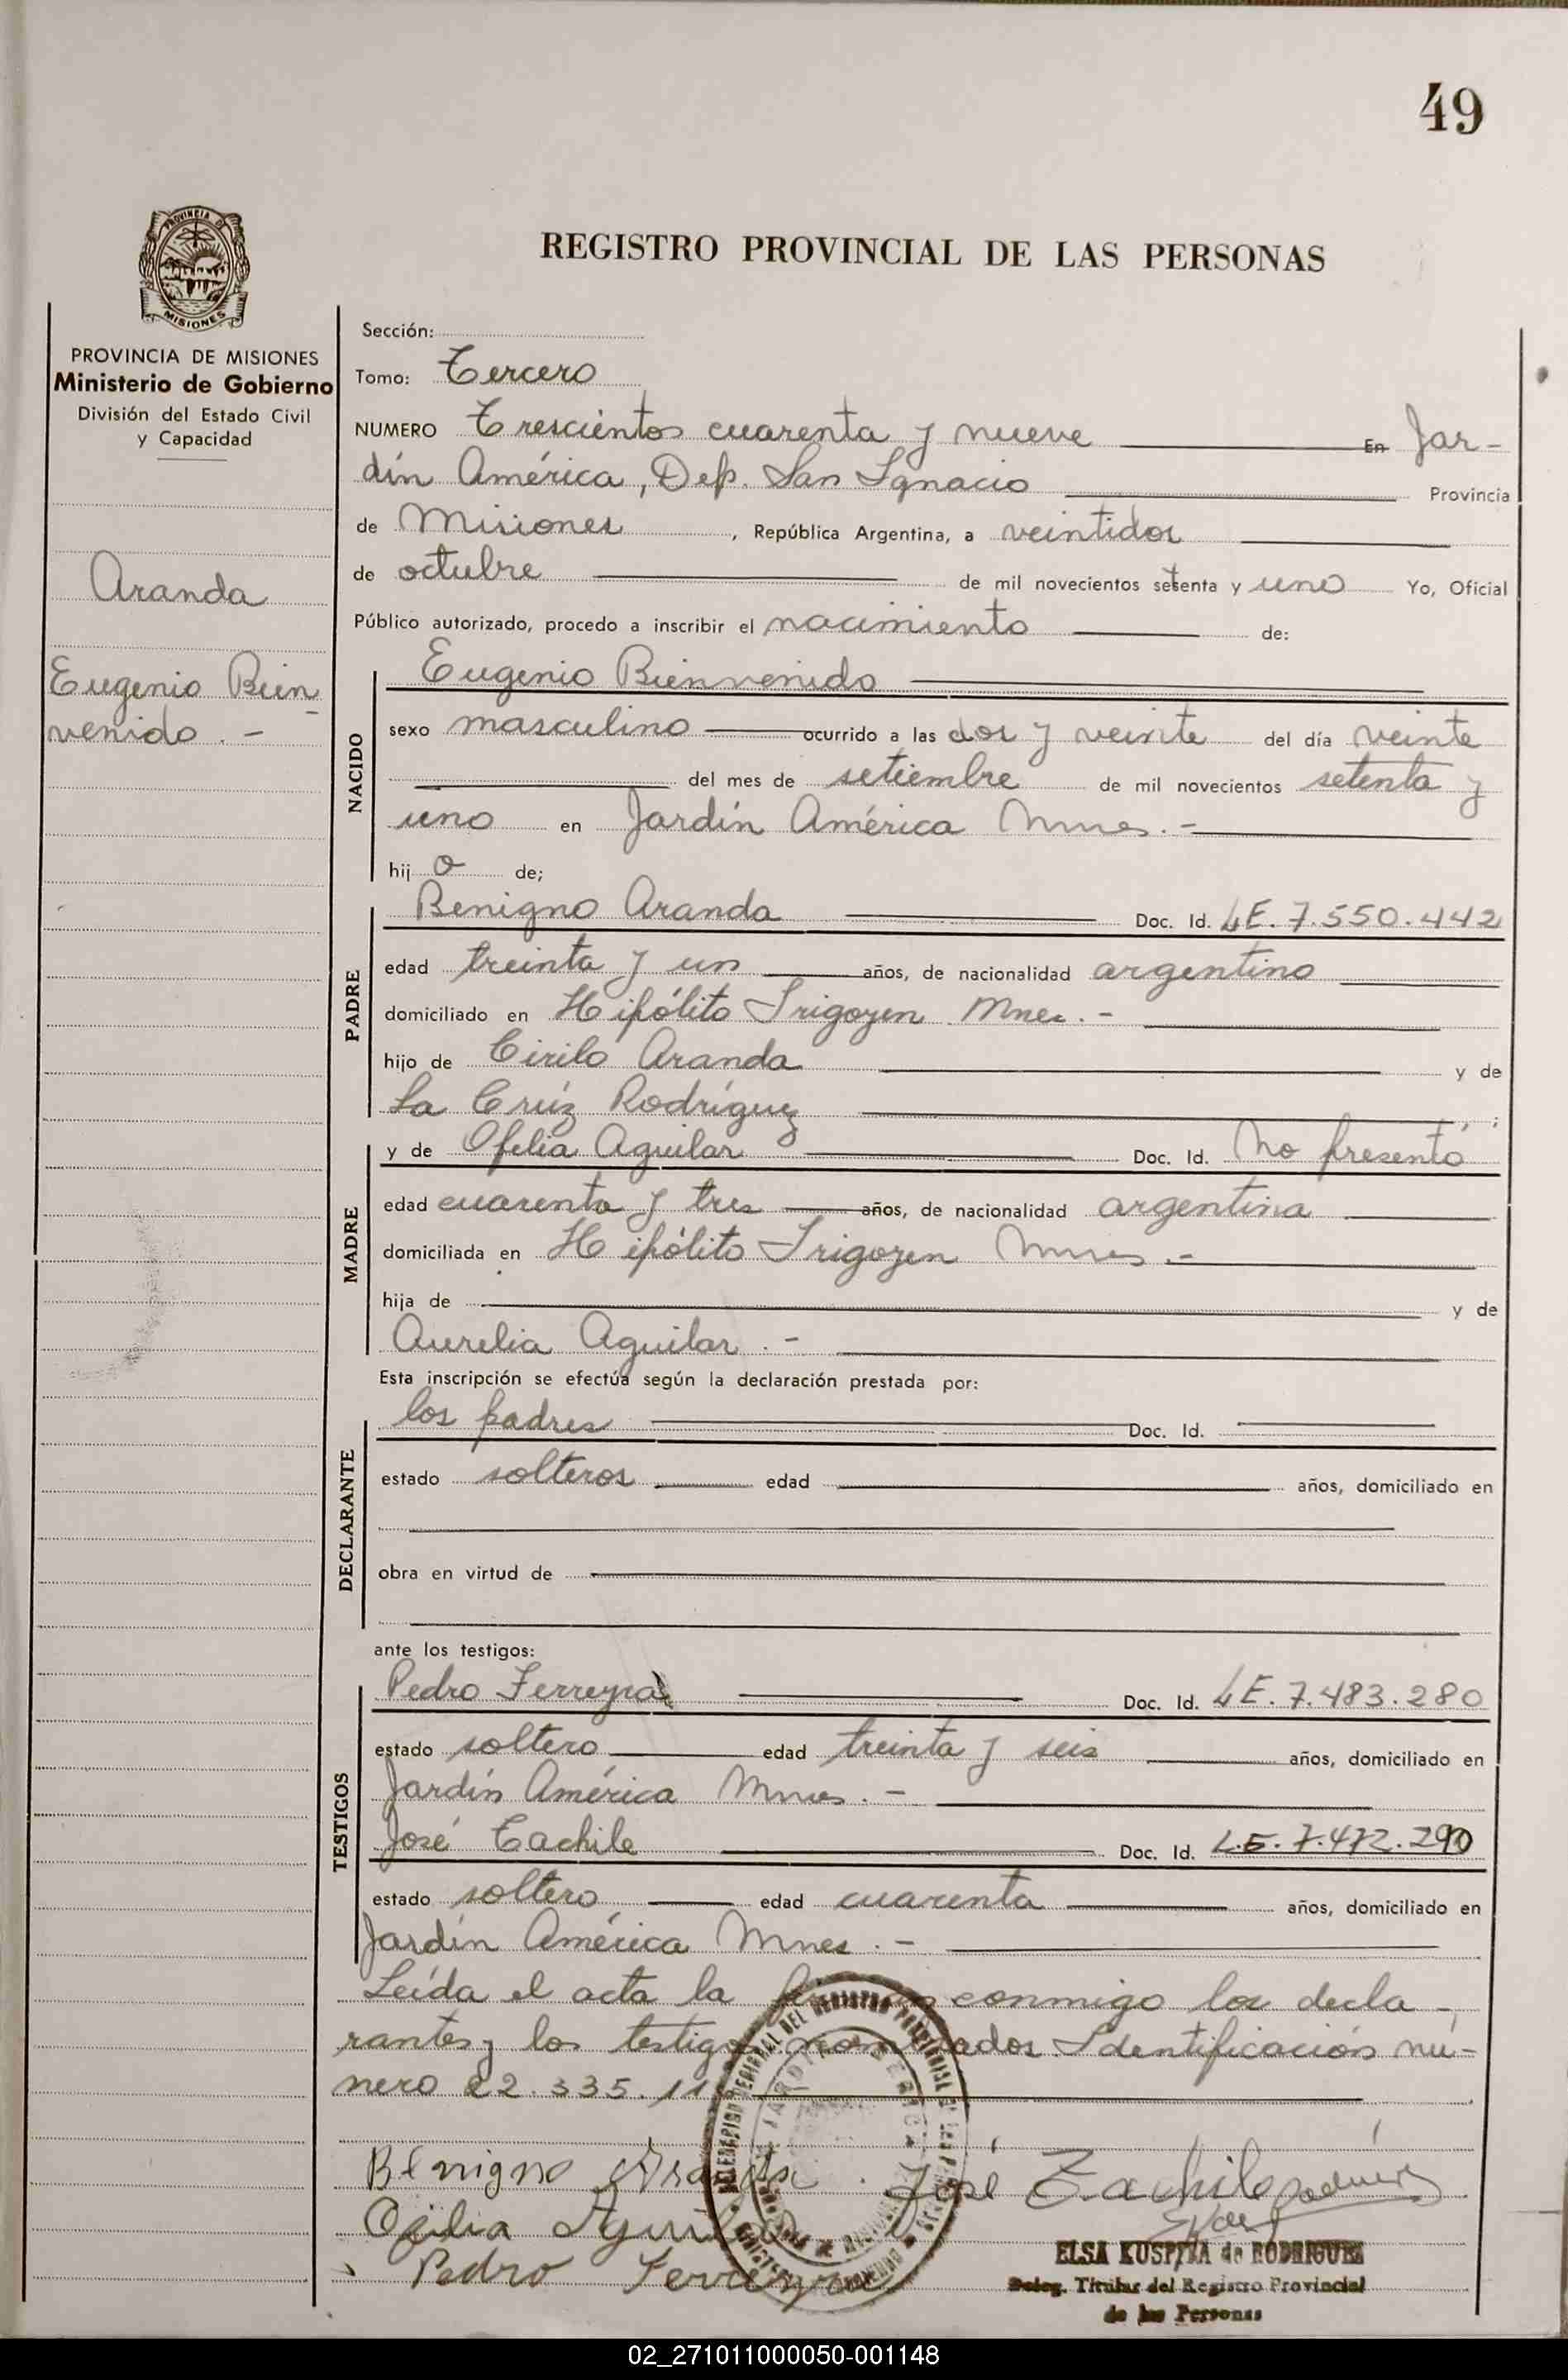 49
PROVINCIA D
MISIONES
PROVINCIA DE MISIONES
Ministerio de Gobierno
División del Estado Civil
y Capacidad
Aranda
Eugenio Bien
venido . -
REGISTRO PROVINCIAL DE LAS PERSONAS
Sección:
Tomo: Tercero
NUMERO Trescientos cuarenta y nueve En Jar-
dín América, Dep. San Ignacio Provincia
de Misiones , República Argentina, a veintidos
de octubre de mil novecientos setenta y uno Yo, Oficial
Público autorizado, procedo a inscribir el nacimiento de:
NACIDO
Eugenio Bienvenido
sexo masculino ocurrido a las dos y veinte del día veinte
del mes de setiembre de mil novecientos setenta y
uno en Jardín América Mnes. -
hij o de;
PADRE
Benigno Aranda Doc. Id. LE. 7.550.442
edad treinta y un años, de nacionalidad argentino
domiciliado en Hipólito Irigoyen Mnes. -
hijo de Cirilo Aranda y de
La Crúz Rodríguez
MADRE
y de Ofelia Aguilar Doc. Id. No presentó
edad cuarenta y tres años, de nacionalidad argentina
domiciliada en Hipólito Irigoyen Mnes .-
hija de y de
Aurelia Aguilar . -
Esta inscripción se efectúa según la declaración prestada por:
DECLARANTE
los padres Doc. Id.
estado solteros edad años, domiciliado en
obra en virtud de
ante los testigos:
TESTIGOS
Pedro Ferreyra Doc. Id. LE. 7.483.280
estado soltero edad treinta y seis años, domiciliado en
Jardín América Mnes . -
José Tachile Doc. Id. L.E. 7.472.290
estado soltero edad cuarenta años, domiciliado en
Jardín América Mnes . -
Leída el acta la conmigo los decla-
rantes y los testigos nombrados. Identificación nú-
mero 22.335.11
Benigno Aranda José Tachile
Ofelia Aguilar
Pedro Ferreyra
ELSA KUSPITA de RODRIGUEZ
Deleg. Titular del Registro Provincial
de las Personas
02_271011000050-001148